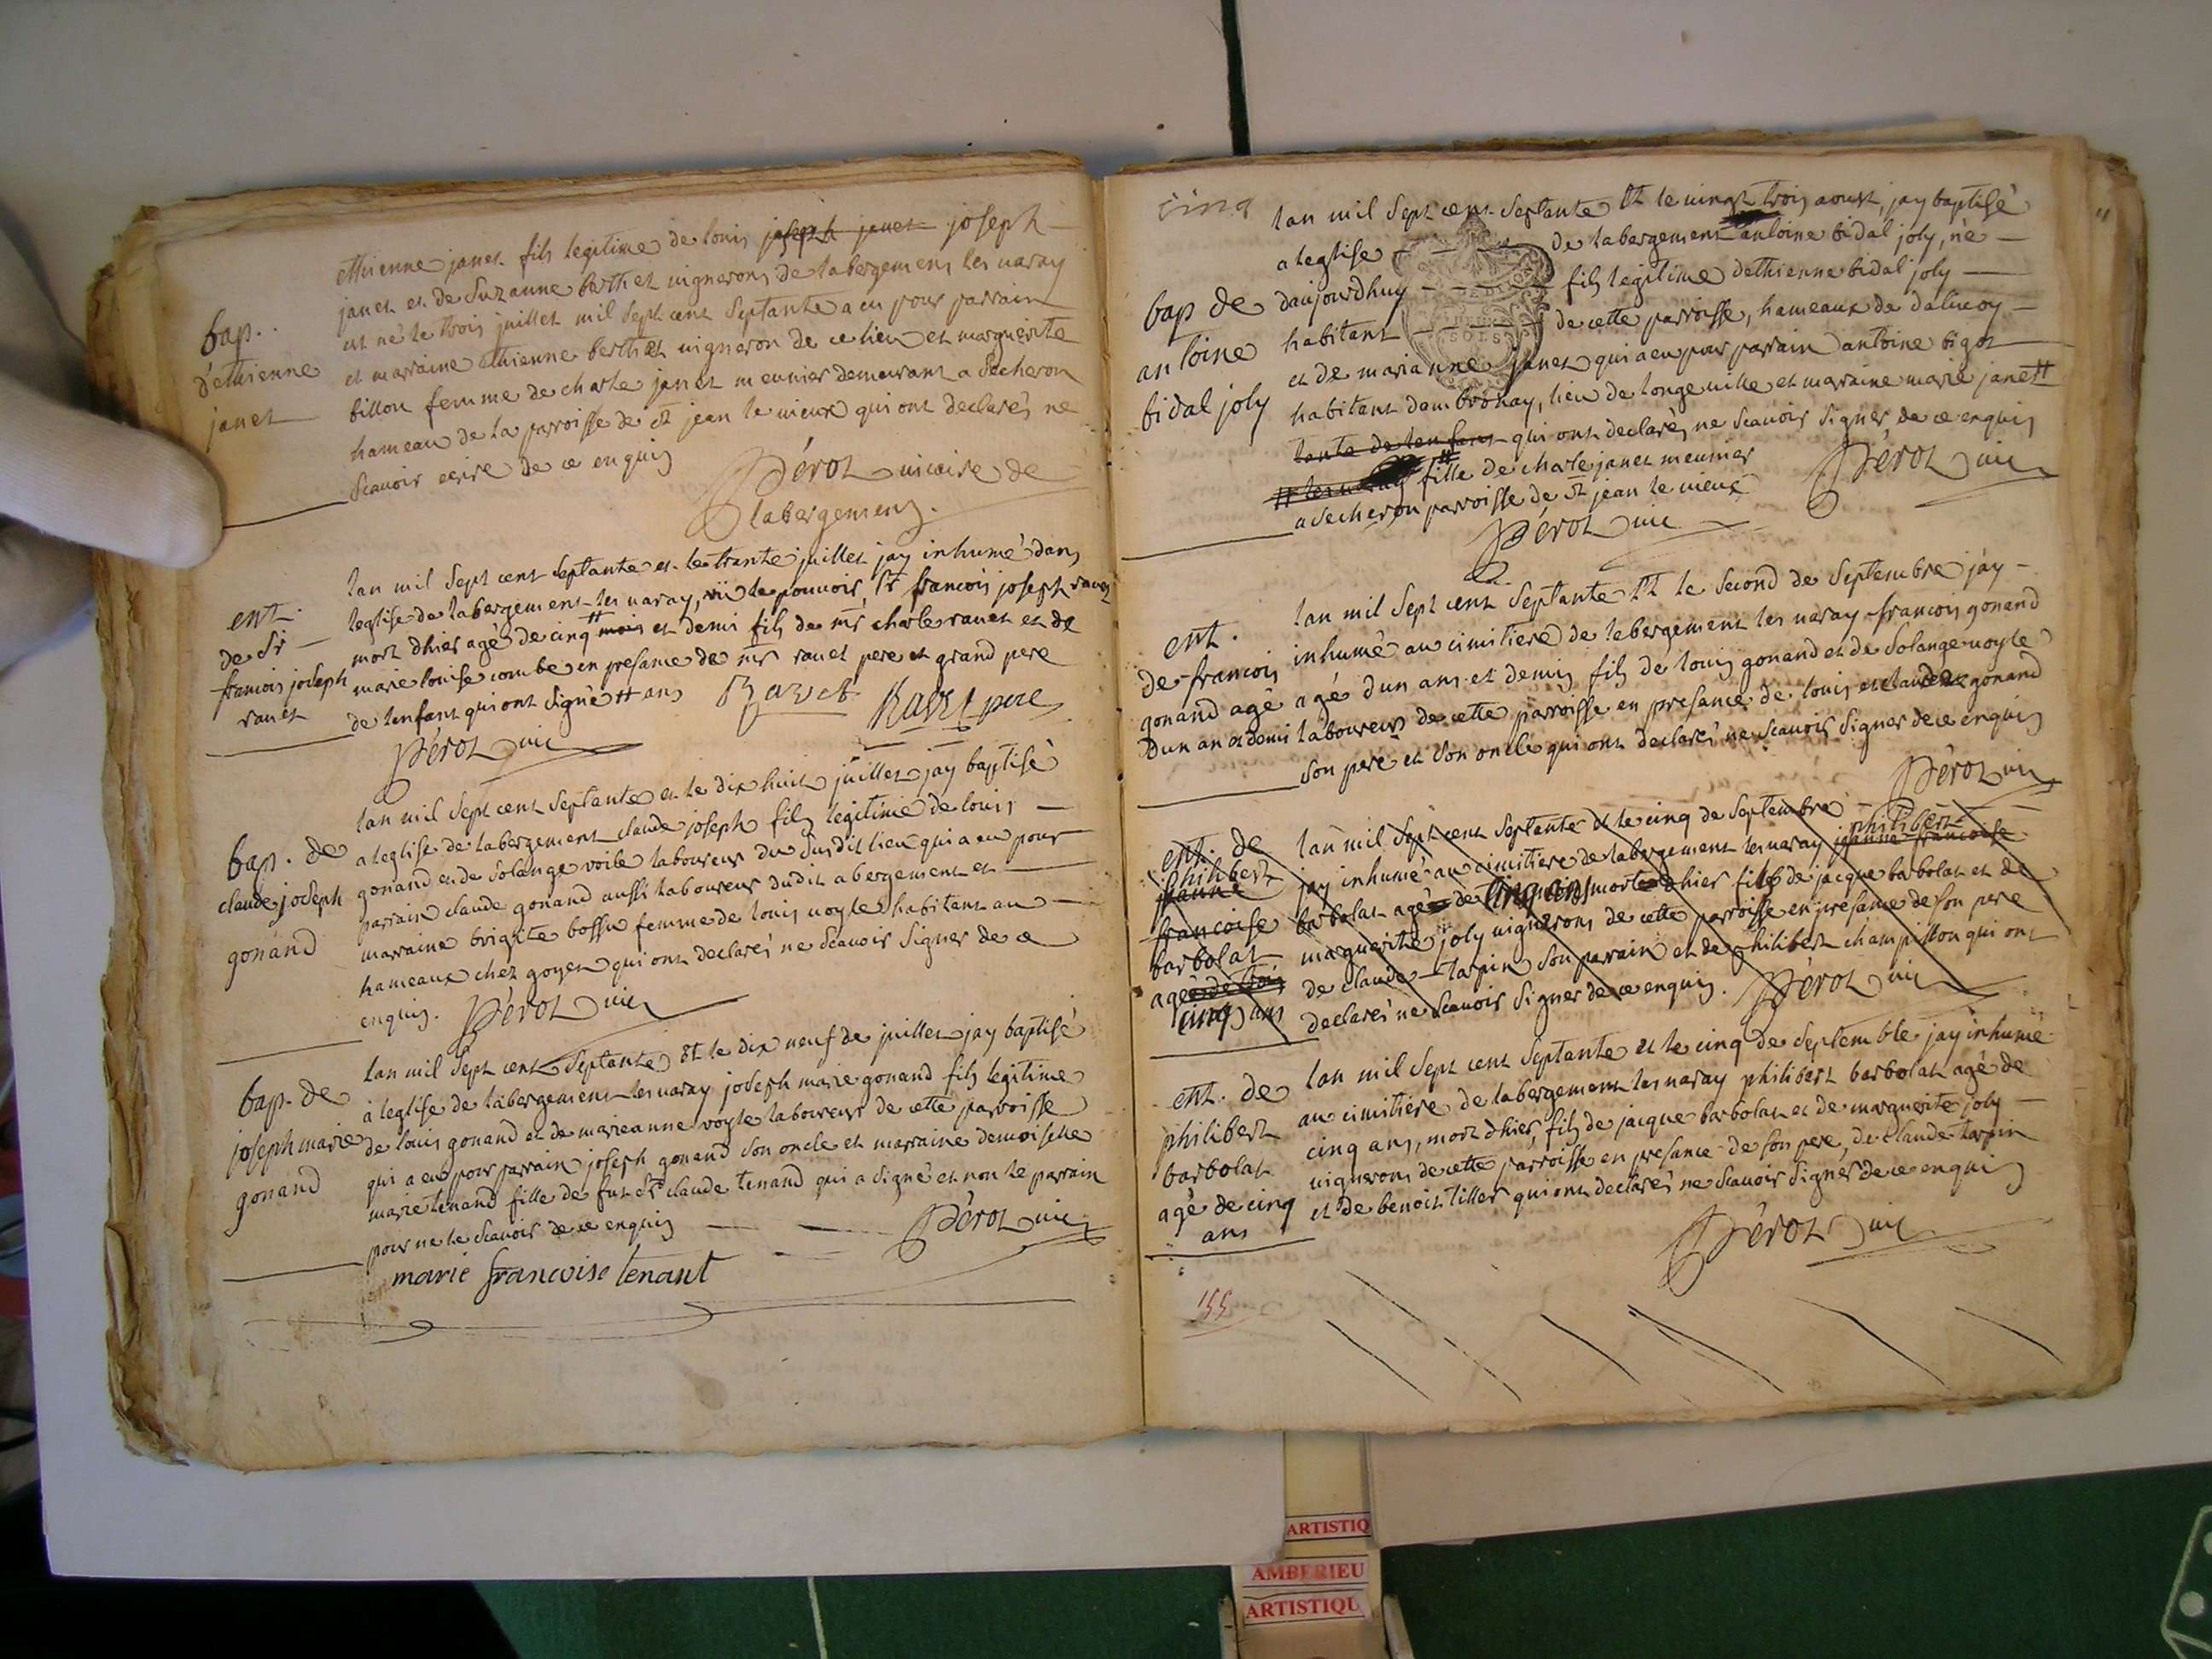 bap.
d'ethienne
janet
ethienne janet fils legitime de louis joseph janet joseph
janet et de Suzanne berthet vignerons de labergement les varay
est né le trois juillet mil sept cent septante a eu pour parrain
et marraine ethienne berthet vigneron de ce lieu et marguerite
billon femme de charle janet meunier demeurant a Secheron
hameau de la parroisse de st jean le vieux qui ont declarés ne
scavoir ecrire de ce enquis
Pérot vicaire de
labergement.
ent.
de Sr
francois joseph
ravet
lan mil sept cent septante et le trante juillet jay inhumé dans
leglise de labergement les varay, vû le pouvoir, Sr francois joseph ravet
mort dhier agé de cinq # mois et demi fils de mr charle ravet et de
marie louise combe en presance de mr ravet pere et grand pere
de lenfant qui ont signé # ans
Ravet
Ravet pere
Pérot vic
bap. de
claude joseph
gonand
lan mil sept cent septante et le dix huit juillet jay baptisé
a leglise de labergement claude joseph fils legitime de louis
gonand et de solange voile laboureur du susdit lieu qui a eu pour
parrain claude gonand aussi laboureur dudit abergement et
marraine brigite bossu femme de louis voyle habitant au
hameaux chez goyet qui ont declarés ne scavoir signer de ce
enquis. Pérot vic
bap. de
joseph marie
gonand
lan mil sept cent septante et le dix neuf de juillet jay baptisé
à leglise de labergement les varay joseph marie gonand fils legitime
de louis gonand et de marieanne voyle laboureur de cette parroisse
qui a eu pour parrain joseph gonand son oncle et marraine demoiselle
marie tenand fille de fut Sr claude tenand qui a signé et non le parrain
pour ne le scavoir de ce enquis
Pérot vic
marie francoise tenant
cinq
bap de
antoine
bidal joly
lan mil sept cent septante et le vingt trois aoust, jay baptisé
a leglise de labergement antoine bidal joly, né
daujourdhuy fils legitime dethienne bidal joly
habitant de cette parroisse, hameaux de dalivoy
SOLS
et de marianne janet qui a eu pour parrain antoine bigot
habitant dambronay, lieu de longeville et marraine marie janet #
tante de lenfant qui ont declarés ne scavoir signer, de ce enquis
# fille de charle janet meunier
Pérot vic
a secheron parroisse de st jean le vieux
Pérot vic
ent.
de francois
gonand agé
dun an et demi
lan mil sept cent septante et le second de septembre jay
inhumé au cimitiere de labergement les varay francois gonand
agé dun ans et demis fils de louis gonand et de solange voyle
laboureurs de cette parroisse en presance de louis et claude gonand
son pere et son oncle qui ont declarés ne scavoir signer de ce enquis
Pérot vic
ent. de
philibert
jeanne
francoise
barbolat
agée de trois
cinq ans
lan mil sept cent septante et le cinq de septembre
philibert
jay inhumé au cimitiere de labergement les varay jeanne francoise
barbolat agée de cinq ans morte dhier fils de jacque barbolat et de
marguerite joly vignerons de cette parroisse en presance de son pere
de claude tarpin son parrain et de philibert champillon qui ont
declarés ne scavoir signer de ce enquis. Pérot vic
ent. de
philibert
barbolat
agé de cinq
ans
lan mil sept cent septante et le cinq de septembre jay inhumé
au cimitiere de labergement les varay philibert barbolat agé de
cinq ans, mort dhier, fils de jacque barbolat et de marguerite joly
vignerons de cette parroisse en presance de son pere, de claude tarpin
et de benoit tiller qui ont declarés ne scavoir signer de ce enquis
Pérot vic
155
ARTISTIQ
AMBERIEU
ARTISTIQU